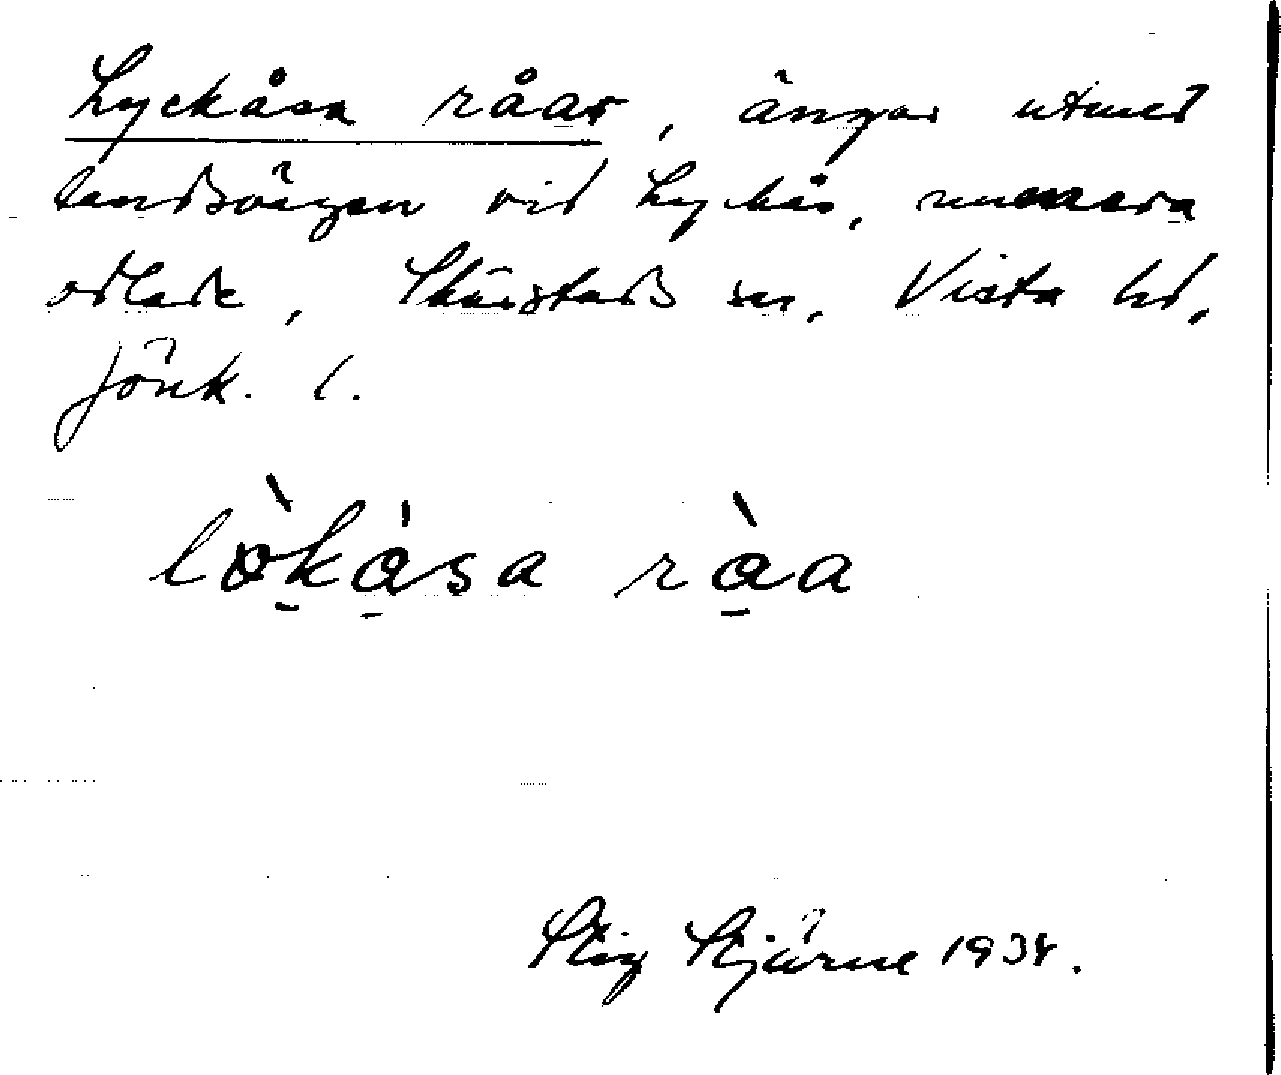 Lyckåsa råar, ängar utmed
landsvägen vid Lyckås, numera
odlade, Skärstads sn, Vista hd,
Jönk. l.
lö̀kåsa ràa
Stig Stjärne 1934.